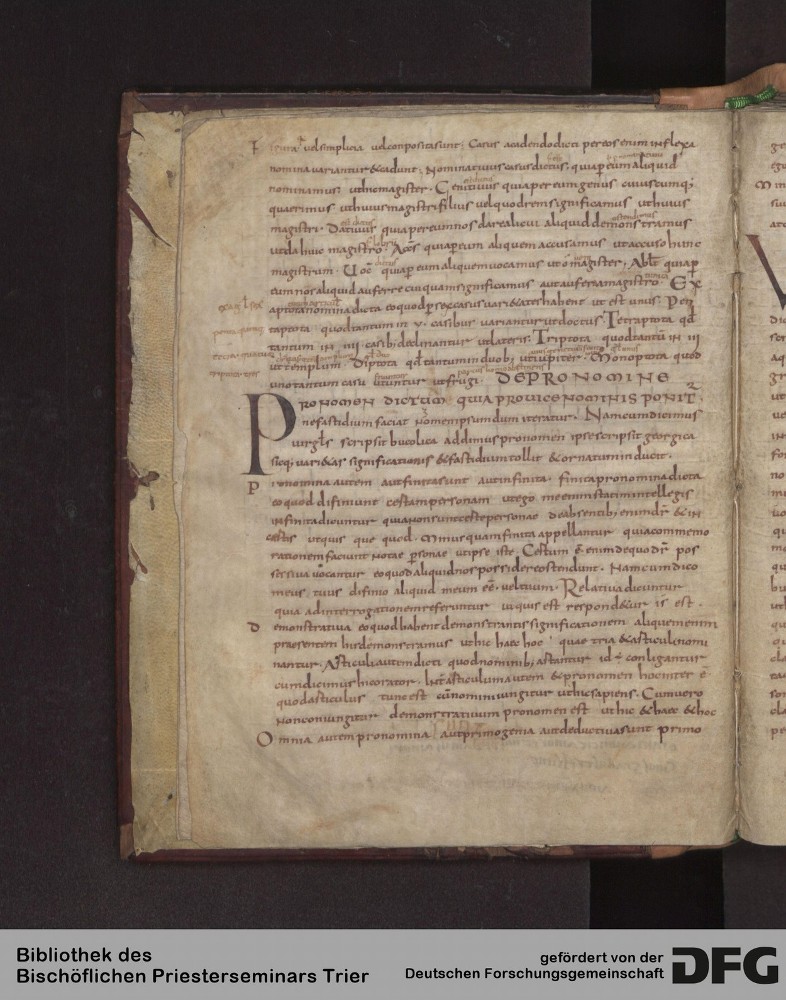 velsimplicia velcompositasunt; Casus acadendodicti pereos enim inflexa
nomina variantur &cadunt; Nominativus casus dictus, quiap eum aliquid
nominamus uthicmagister. Genitivus quiaper eumgenus cuiuscumq;
quaerimus uthuiusmagistrifilius velquodremsignificamus uthuius
magistri. Dativus quiapereumnos darealicui aliquid demonstramus
utdahuic magistro. Acc̄s quiap eum aliquem accusamus utaccusohunc
magistrum. Uoc̄ quiap eumaliquemvocamus utomagister. Abl̄t quiap
eumnosaliquid auferre cuiquamsignificamus autauferamagistro. Ex
aptotanomina dicta eoquodp sexcasus vari&atēhabent ut est unus. Pen
taptota quodtantum in v. casibus varianturutdoctus. Tetraptota qđ
tantum in iiii casib; declinantur utlateris. Triptota quodtantū in iii
uttemplum. Diptota qđtantumin duob; utiupiter. Monoptota quod
unotantum casu utuntur utfrugi. DEPRONOMINE
PRONOMEN DICTUM QUIAPROVICENOMINIS PONIT̄.
nefastidium faciat nomenipsumdum iteratur. Namcumdicimus
uirgl̄s scripsit bucolica addimuspronomen ipsescripsit georgica
sicq; vari&as significationis &fastidiumtollit &ornatuminducit.
Pronomina autem autfinitasunt autinfinita. finitapronominadicta
eoquod difiniunt certampersonam utego meenimstatimintellegis
infinitadicuntur quianonsuntcertepersonae deabsentib; enimdr̄ &in
certis utquis que quod. minusquamfinita appellantur quiacommemo
rationemfaciunt notae psonae utipse iste. Certum ē. enimdequodr̄ pos
sessiva vocantur eoquodaliquidnospossidereostendunt. Namcumdico
meus tuus difinio aliquid meum eē. veltuum. Relativadicuntur
quia adinterrogationemreferuntur utquis est respond&ur is est.
Demonstrativa eoquodhabent demonstrantissignificationem. aliquemenim
praesentem hisdemonstramus uthic haec hoc. quae tria &articulinomi
nantur. Articuliautemdicti quodnominib; artantur id ē conligantur
cumdicimushicorator. Int̄ articulumautem &pronomen hocinter ē
quodarticulus tuncest cūnominiiungitur uthicsapiens. Cumvero
nonconiungitur demonstrativum pronomen est uthic &haec &hoc
Omnia autempronomina autprimogenia autdeductivasunt primo
Bibliothek des
Bischöflichen Priesterseminars Trier
gefördert von der
Deutschen Forschungsgemeinschaft
DFG